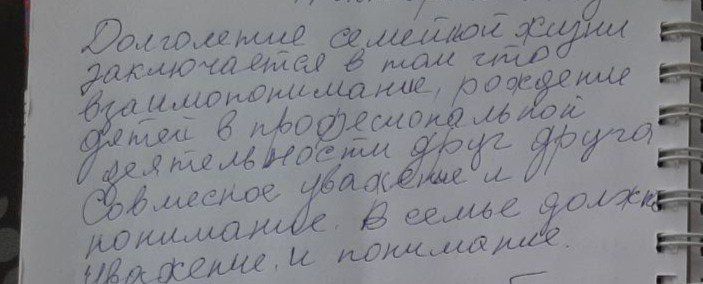 Долголетие семейной жизни
заключается в том что
взаимопонимание, рождение
детей в професиональной
деятельности друг друга
Совмесное уважение и
понимание. В семье должно
уважение. и понимание.